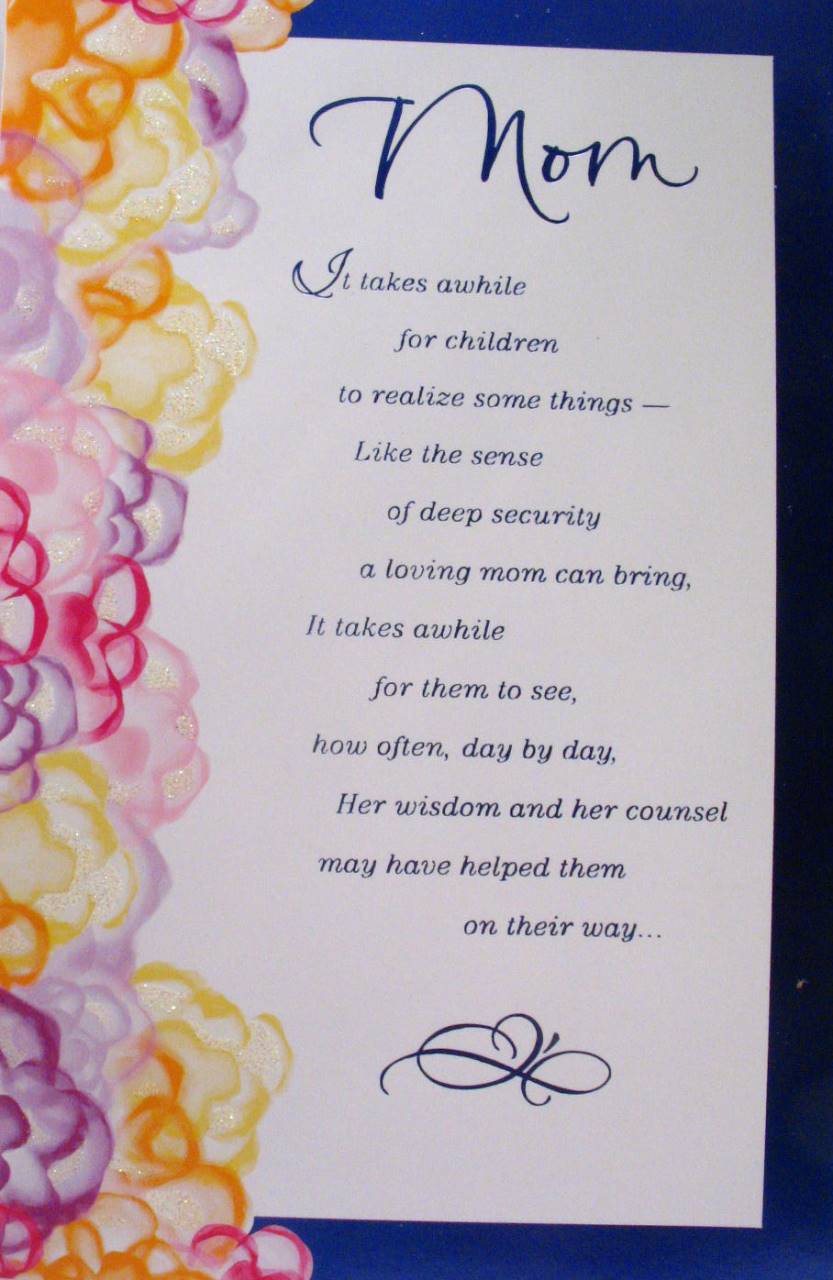 Mom
It takes awhile
for children
to realize some things —
Like the sense
of deep security
a loving mom can bring,
It takes awhile
for them to see,
how often, day by day,
Her wisdom and her counsel
may have helped them
on their way...